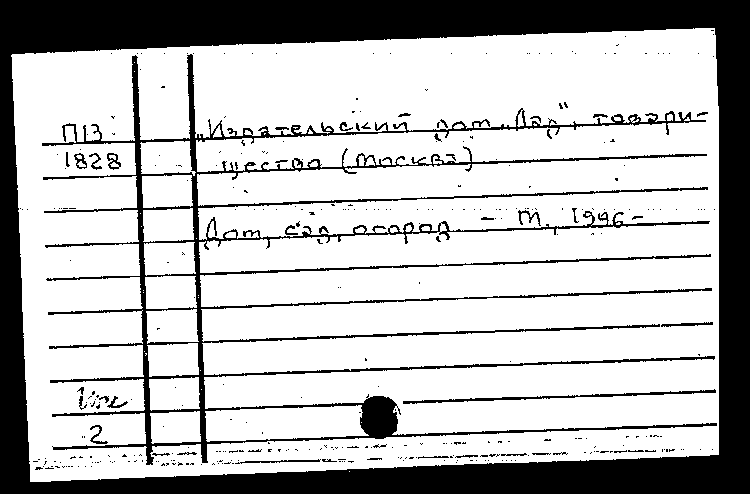 П13
1828
„Издательский дом „Лад", товари-
щество (Москва)
Дом, сад, огород. - М., 1996-
2